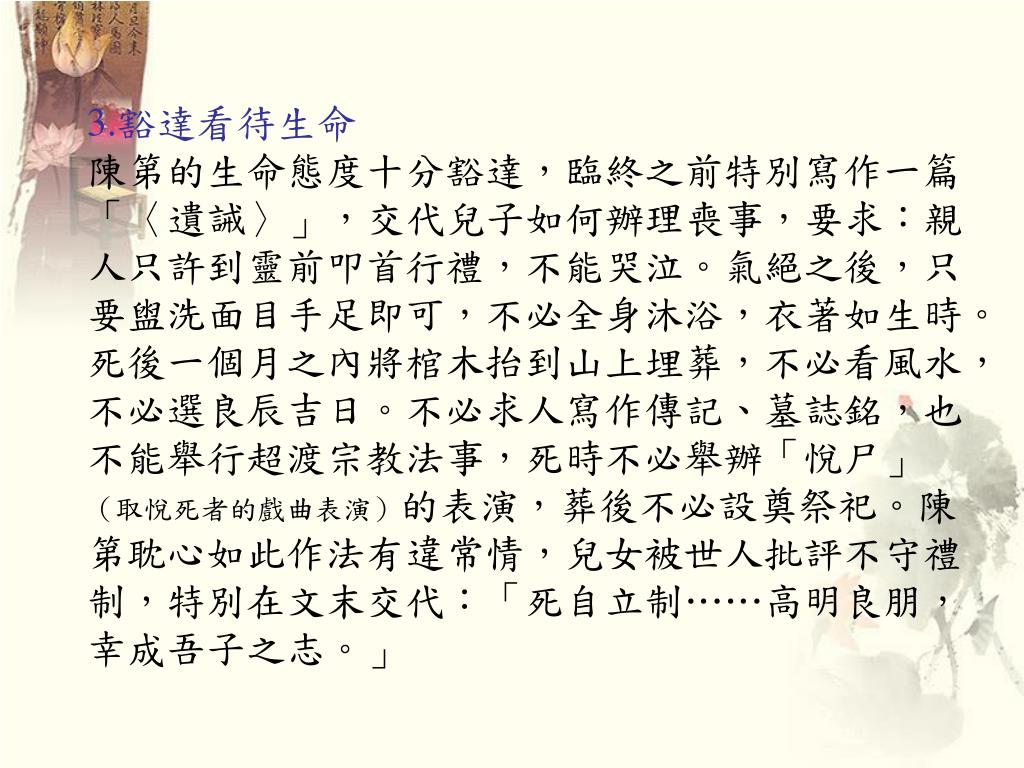 3.豁達看待生命
陳第的生命態度十分豁達，臨終之前特別寫作一篇
「〈遺誡〉」，交代兒子如何辦理喪事，要求：親
人只許到靈前叩首行禮，不能哭泣。氣絕之後，只
要盥洗面目手足即可，不必全身沐浴，衣著如生時。
死後一個月之內將棺木抬到山上埋葬，不必看風水，
不必選良辰吉日。不必求人寫作傳記、墓誌銘，也
不能舉行超渡宗教法事，死時不必舉辦「悅尸」
（取悅死者的戲曲表演）的表演，葬後不必設奠祭祀。陳
第耽心如此作法有違常情，兒女被世人批評不守禮
制，特別在文末交代：「死自立制……高明良朋，
幸成吾子之志。」